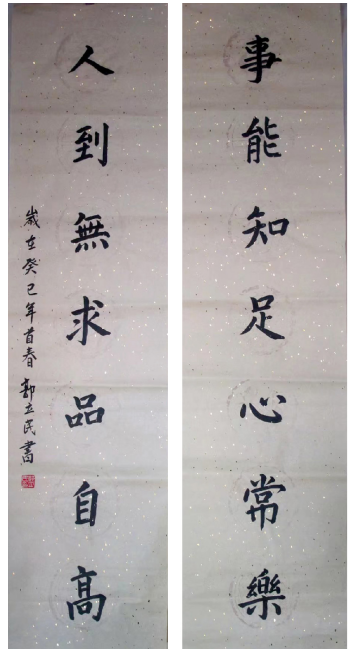 事能知足心常樂
人到無求品自高
歲在癸巳年首春 郭立民書